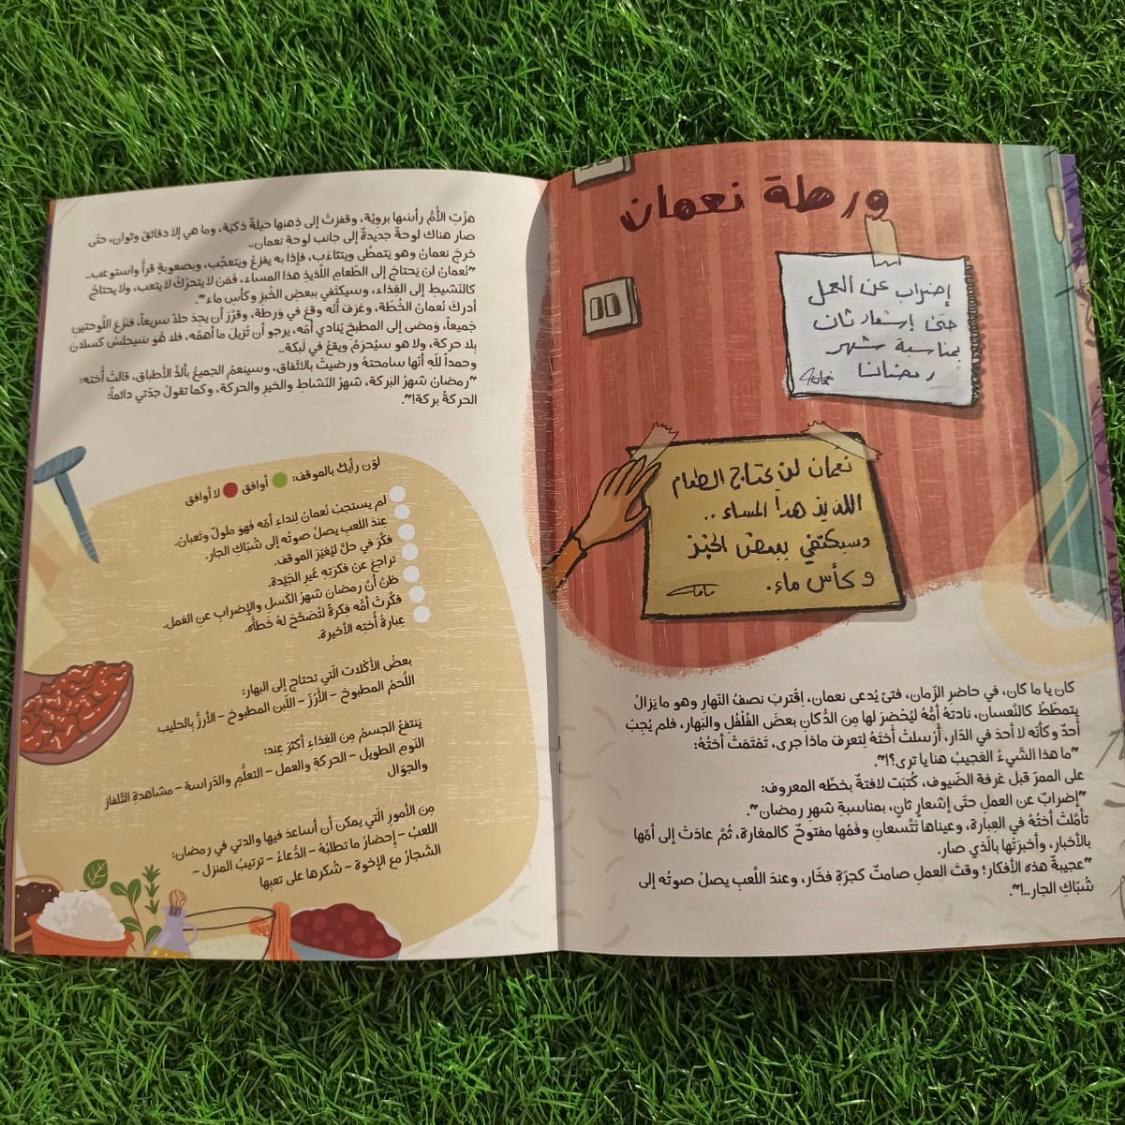 ورطة نعمان
إضراب عن العمل
حتى إشعار ثان
بمناسبة شهر
رمضان
نعمان
نعمان لن يحتاج الطعام
اللذيذ هذا المساء..
وسيكتفي ببعض الخبز
وكأس ماء.
ماما
كان يا ما كان، في حاضرِ الزّمان، فتىً يُدعى نعمان، اِقتربَ نصفُ النّهارِ وهو ما يَزالُ
يتمطّطُ كالنّعسان، نادتهُ أمُّهُ ليُحْضِرَ لها مِنَ الدُّكانِ بعضَ الفُلْفُلِ والبَهار، فلم يُجِبْ
أحدٌ وكأنّه لا أحدَ في الدّار، أرْسلتْ أختَهُ لتعرفَ ماذا جرى، تَمْتَمَتْ أختُهُ:
"ما هذا الشّيءُ العَجيبُ هنا يا ترى؟!".
على الممرّ قبلَ غرفة الضّيوف، كُتبَت لافتةٌ بخطّه المعروف:
"إضرابٌ عن العملِ حتّى إشعارٍ ثانٍ، بمناسبةِ شهرِ رمضان".
تأمّلتْ أختُهُ في العِبارة، وعيناها تَتّسعانِ وفَمُها مفتوحٌ كالمغارة، ثُمَّ عادَتْ إلى أمّها
بالأخبار، وأخبرَتْها بالّذي صار.
"عجيبةٌ هذه الأفكار؛ وقتَ العملِ صامتٌ كجرّةِ فخّار، وعندَ اللّعبِ يصلُ صوتُه إلى
شُبّاكِ الجار..!".
هزّتِ الأُمُّ رأسَها برويّة، وقفزتْ إلى ذِهنِها حيلةٌ ذكيّة، وما هي إلا دقائقُ وثوان، حتّى
صار هناك لوحةٌ جديدةٌ إلى جانب لوحة نعمان..
خرجَ نعمانُ وهو يَتمطّى ويتثاءَب، فإذا به يفزعُ ويَتعجَّب، وبصعوبةٍ قرأَ واستوعب..
"نُعمانُ لن يَحتاجَ إلى الطّعامِ اللّذيذِ هذا المساء، فمَن لا يتحرّكُ لا يتعب، ولا يحتاجُ
كالنّشيطِ إلى الغِذاء، وسيكتفي ببعضِ الخُبزِ وكأسِ ماء".
أدركَ نُعمانُ الخُطّة، وعَرَفَ أنّه وقعَ في وَرطة، وقرَّرَ أن يجدَ حلّاً سريعاً، فنزعَ اللّوحتينِ
جَميعاً، ومَضى إلى المطبخِ يُنادي أمَّه، يرجو أن تُزيلَ ما أهمّه، فلا هُو سَيجلِسُ كسلان
بِلا حركة، ولا هو سيُحرَمُ ويقعُ في لَبكة..
وحمداً للهِ أنّها سامحتهُ ورضيتْ بالاتّفاق، وسينعمُ الجميعُ بألذِّ الأطباق، قالتْ أُختُه:
"رمضانُ شهرُ البَركة، شهرُ النّشاطِ والخيرِ والحركة، وكما تقولُ جدّتي دائماً:
الحركةُ بركة!".
لوّن رأيكَ بالموقف: أوافق لا أوافق
لم يستجبْ نُعمانُ لنداءِ أمّه فهوَ ملولٌ وتَعبان.
عندَ اللّعبِ يصلُ صوتُه إلى شُبّاكِ الجار.
فكَّرَ في حلٍّ ليُغيّرَ الموقف.
تراجعَ عن فكرَتِهِ غَيرِ الجَيّدة.
ظنَّ أنّ رمضانَ شهرُ الكَسلِ والإضرابِ عنِ العمَل.
فكّرتْ أمُّه فكرةً لتُصَحّحَ لهُ خَطأَه.
عِبارةُ أُختِه الأخيرة.
بعضُ الأكْلات الّتي تحتاج إلى البهار:
اللّحمُ المطبوخ - الأَرُزّ - اللّبن المطبوخ - الأَرزُّ بالحليب
يَنتفعُ الجسمُ مِنَ الغِذاءِ أكثرَ عِند:
النّومِ الطويل - الحركةِ والعمل - التعلُّمِ والدّراسة - مشاهدةِ التّلفاز
والجوّال
مِنَ الأمورِ الّتي يمكن أن أُساعدَ فيها والدتي في رمضان:
اللعبُ - إحضارُ ما تطلبُهُ - الدُّعاءُ - ترتيبُ المنزل -
الشّجارُ مع الإخوة - شُكرها على تعبِها